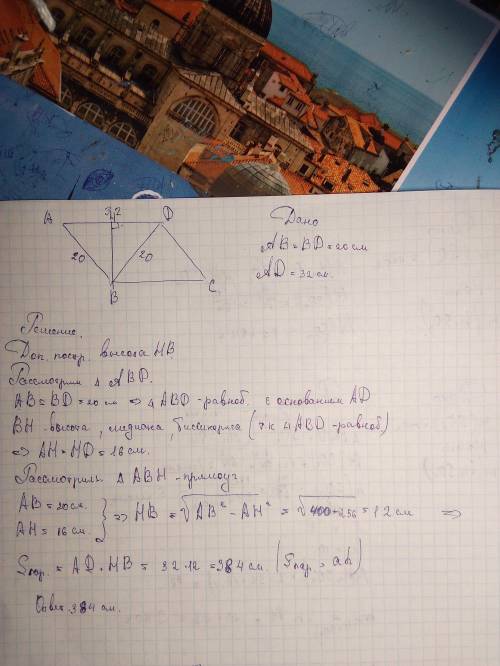 A 32 D
20 20
B C
Дано
AB = BD = 20 см
AD = 32 см.
Решение.
Доп. постр. высота HB.
Рассмотрим △ ABD.
AB = BD = 20 см ⇒ △ ABD - равноб. с основанием AD
BH - высота, медиана, биссектриса (т к △ ABD - равноб)
⇒ AH = HD = 16 см.
Рассмотрим △ ABH - прямоуг
AB = 20 см.
AH = 16 см.
} ⇒ HB = √AB² - AH² = √400-256 = 12 см ⇒
Sпар. = AD · HB = 32 · 12 = 384 см. (Sпар = ah)
Ответ 384 см.